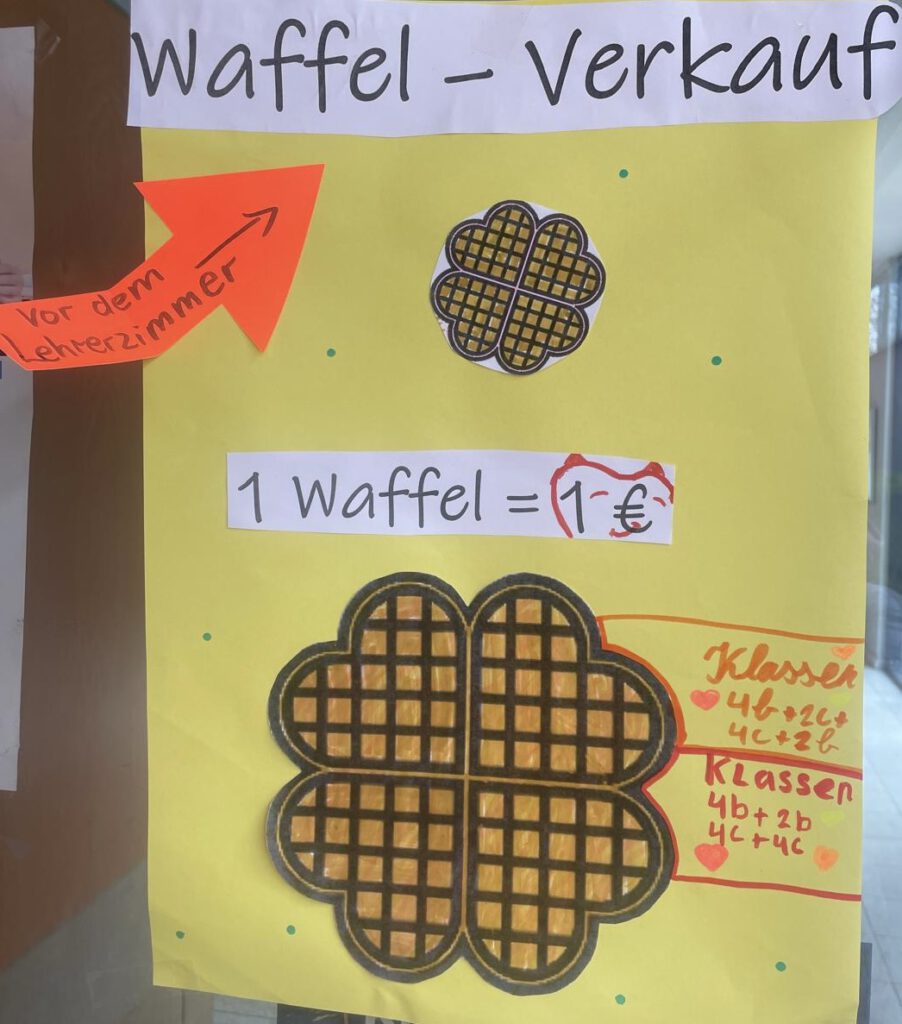 Waffel - Verkauf
Vor dem
Lehrerzimmer
1 Waffel = 1 €
Klassen
4b+2c+
4c+2b
Klassen
4b+2b
4c+4c